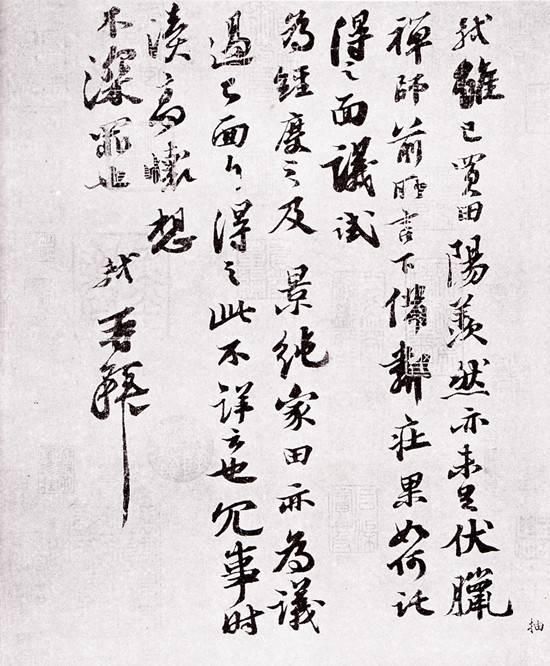 軾雖已買田陽羨然亦未足伏臘
禪師前所言下備鄰莊果如何託
得之面議試
為經度之及景純家田亦為議
過已面白得之此不詳云也冗事時
瀆高懷想
不深罪也
軾再拜
抽